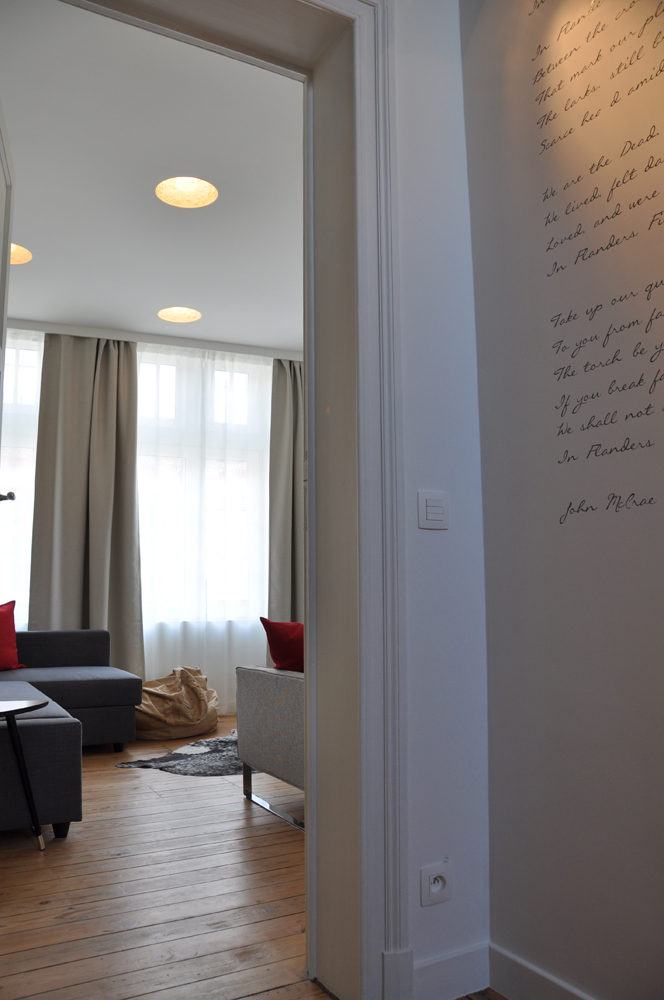 In
In Flande
Between the cro
That mark our pl
The larks, still b
Scarce hea d amid
We are the Dead
We lived, felt da
Loved, and were
In Flanders Fi
Take up our qu
To you from fa
The torch be y
If you break fa
We shall not
In Flanders
John McCrae